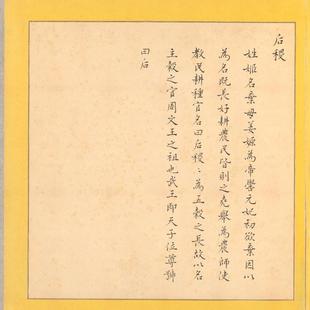 后稷
姓姬名棄母姜嫄為帝嚳元妃初欲棄因以
為名既長好耕農民皆則之堯舉為農師使
教民耕種官名曰后稷〻為五穀之長故以名
主穀之官周文王之祖也武王即天子位尊號
曰后